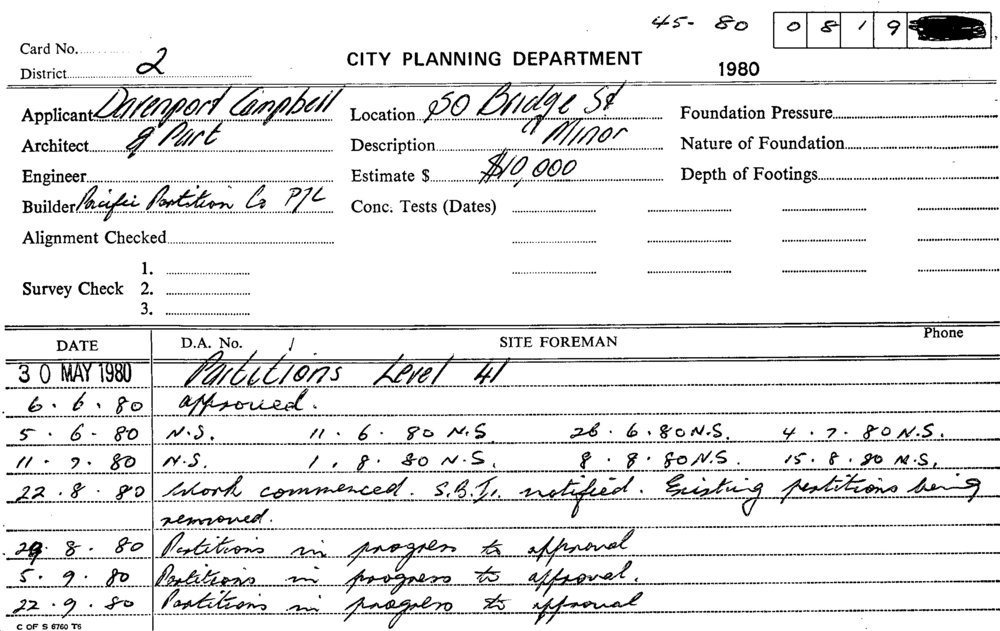 45 - 80 0819
Card No.
District 2
CITY PLANNING DEPARTMENT
1980
Applicant Davenport Campbell
Location 50 Bridge St
Foundation Pressure
Architect & Part
Description Minor
Nature of Foundation
Engineer
Estimate $ $10,000
Depth of Footings
Builder Pacific Partition Co P/L
Conc. Tests (Dates)
Alignment Checked
1.
Survey Check 2.
3.
DATE D.A. No. SITE FOREMAN Phone
30 MAY 1980 Partitions Level 41
6 . 6 . 80 approved.
5 . 6 - 80 N.S. 11 . 6 . 80 N.S. 26 . 6 . 80 N.S. 4 . 7 . 80 N.S.
11 . 7 . 80 N.S. 1 . 8 . 80 N.S. 8 . 8 . 80 N.S. 15 . 8 . 80 N.S.
22 . 8 . 80 Work commenced. S.B.I. notified. Existing partitions being
removed.
29 8 . 80 Partitions in progress to approval
5 . 9 . 80 Partitions in progress to approval.
22 . 9 . 80 Partitions in progress to approval
C OF S 6760 T6